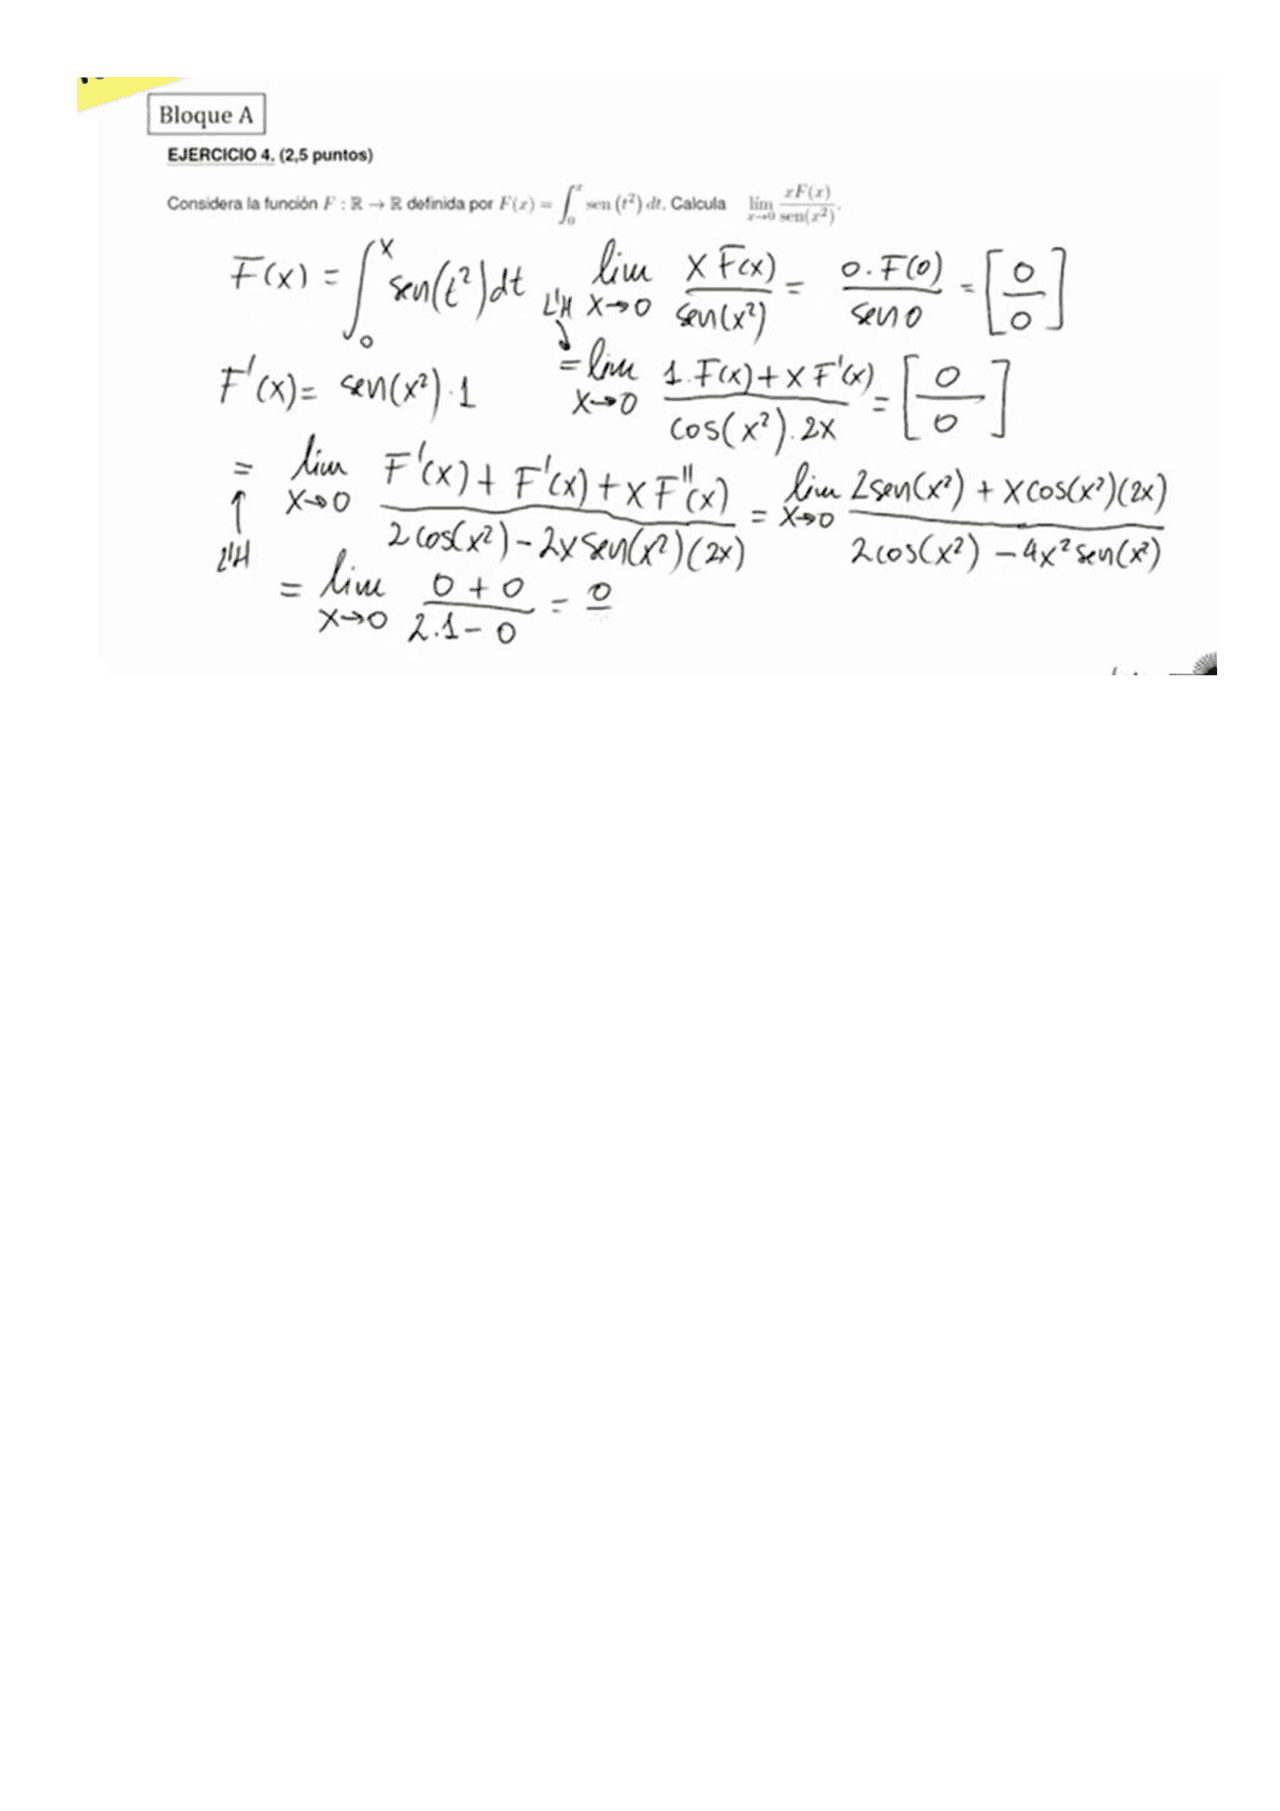 Bloque A
EJERCICIO 4. (2,5 puntos)
Considera la función F : ℝ → ℝ definida por F(x) = ∫₀ˣ sen (t²) dt. Calcula lím x→0 xF(x)/sen(x²).
F(x) = ∫₀ˣ sen(t²)dt
lim x→0 xF(x)/sen(x²) = 0·F(0)/sen 0 = [0/0]
F'(x) = sen(x²)·1
L'H = lim x→0 1·F(x) + xF'(x)/cos(x²)·2x = [0/0]
= L'H lim x→0 F'(x) + F'(x) + xF''(x)/2cos(x²) − 2x sen(x²)(2x) = lim x→0 2sen(x²) + xcos(x²)(2x)/2cos(x²) − 4x²sen(x²)
= lim x→0 0 + 0/2·1 − 0 = 0